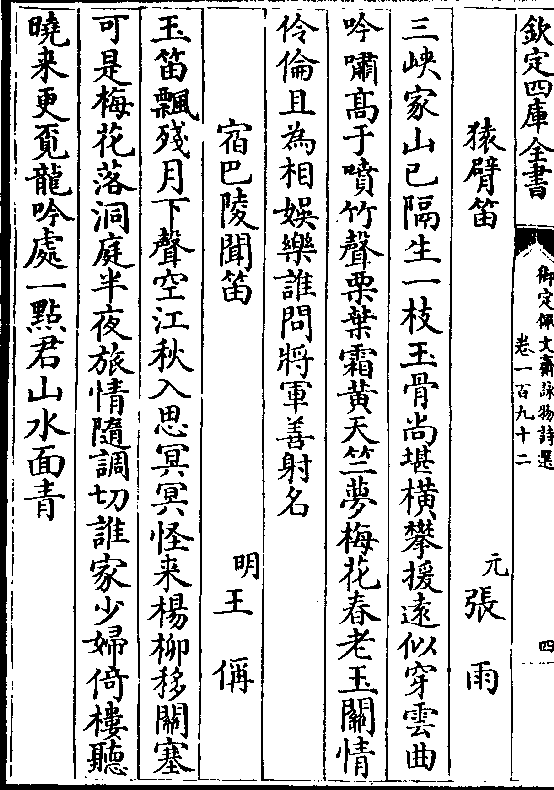 欽定四庫全書
御定佩文齋詠物詩選
卷一百九十二
四
猿臂笛
元張雨
三峽家山已隔生一枝玉骨尚堪橫攀援遠似穿雲曲
吟嘯髙于噴竹聲栗葉霜黄天竺夢梅花春老玉關情
伶倫且為相娛樂誰問將軍善射名
宿巴陵聞笛
明王偁
玉笛飄殘月下聲空江秋入思冥冥怪来楊柳移關塞
可是梅花落洞庭半夜旅情隨調切誰家少婦倚樓聽
曉来更覔龍吟處一點君山水面青